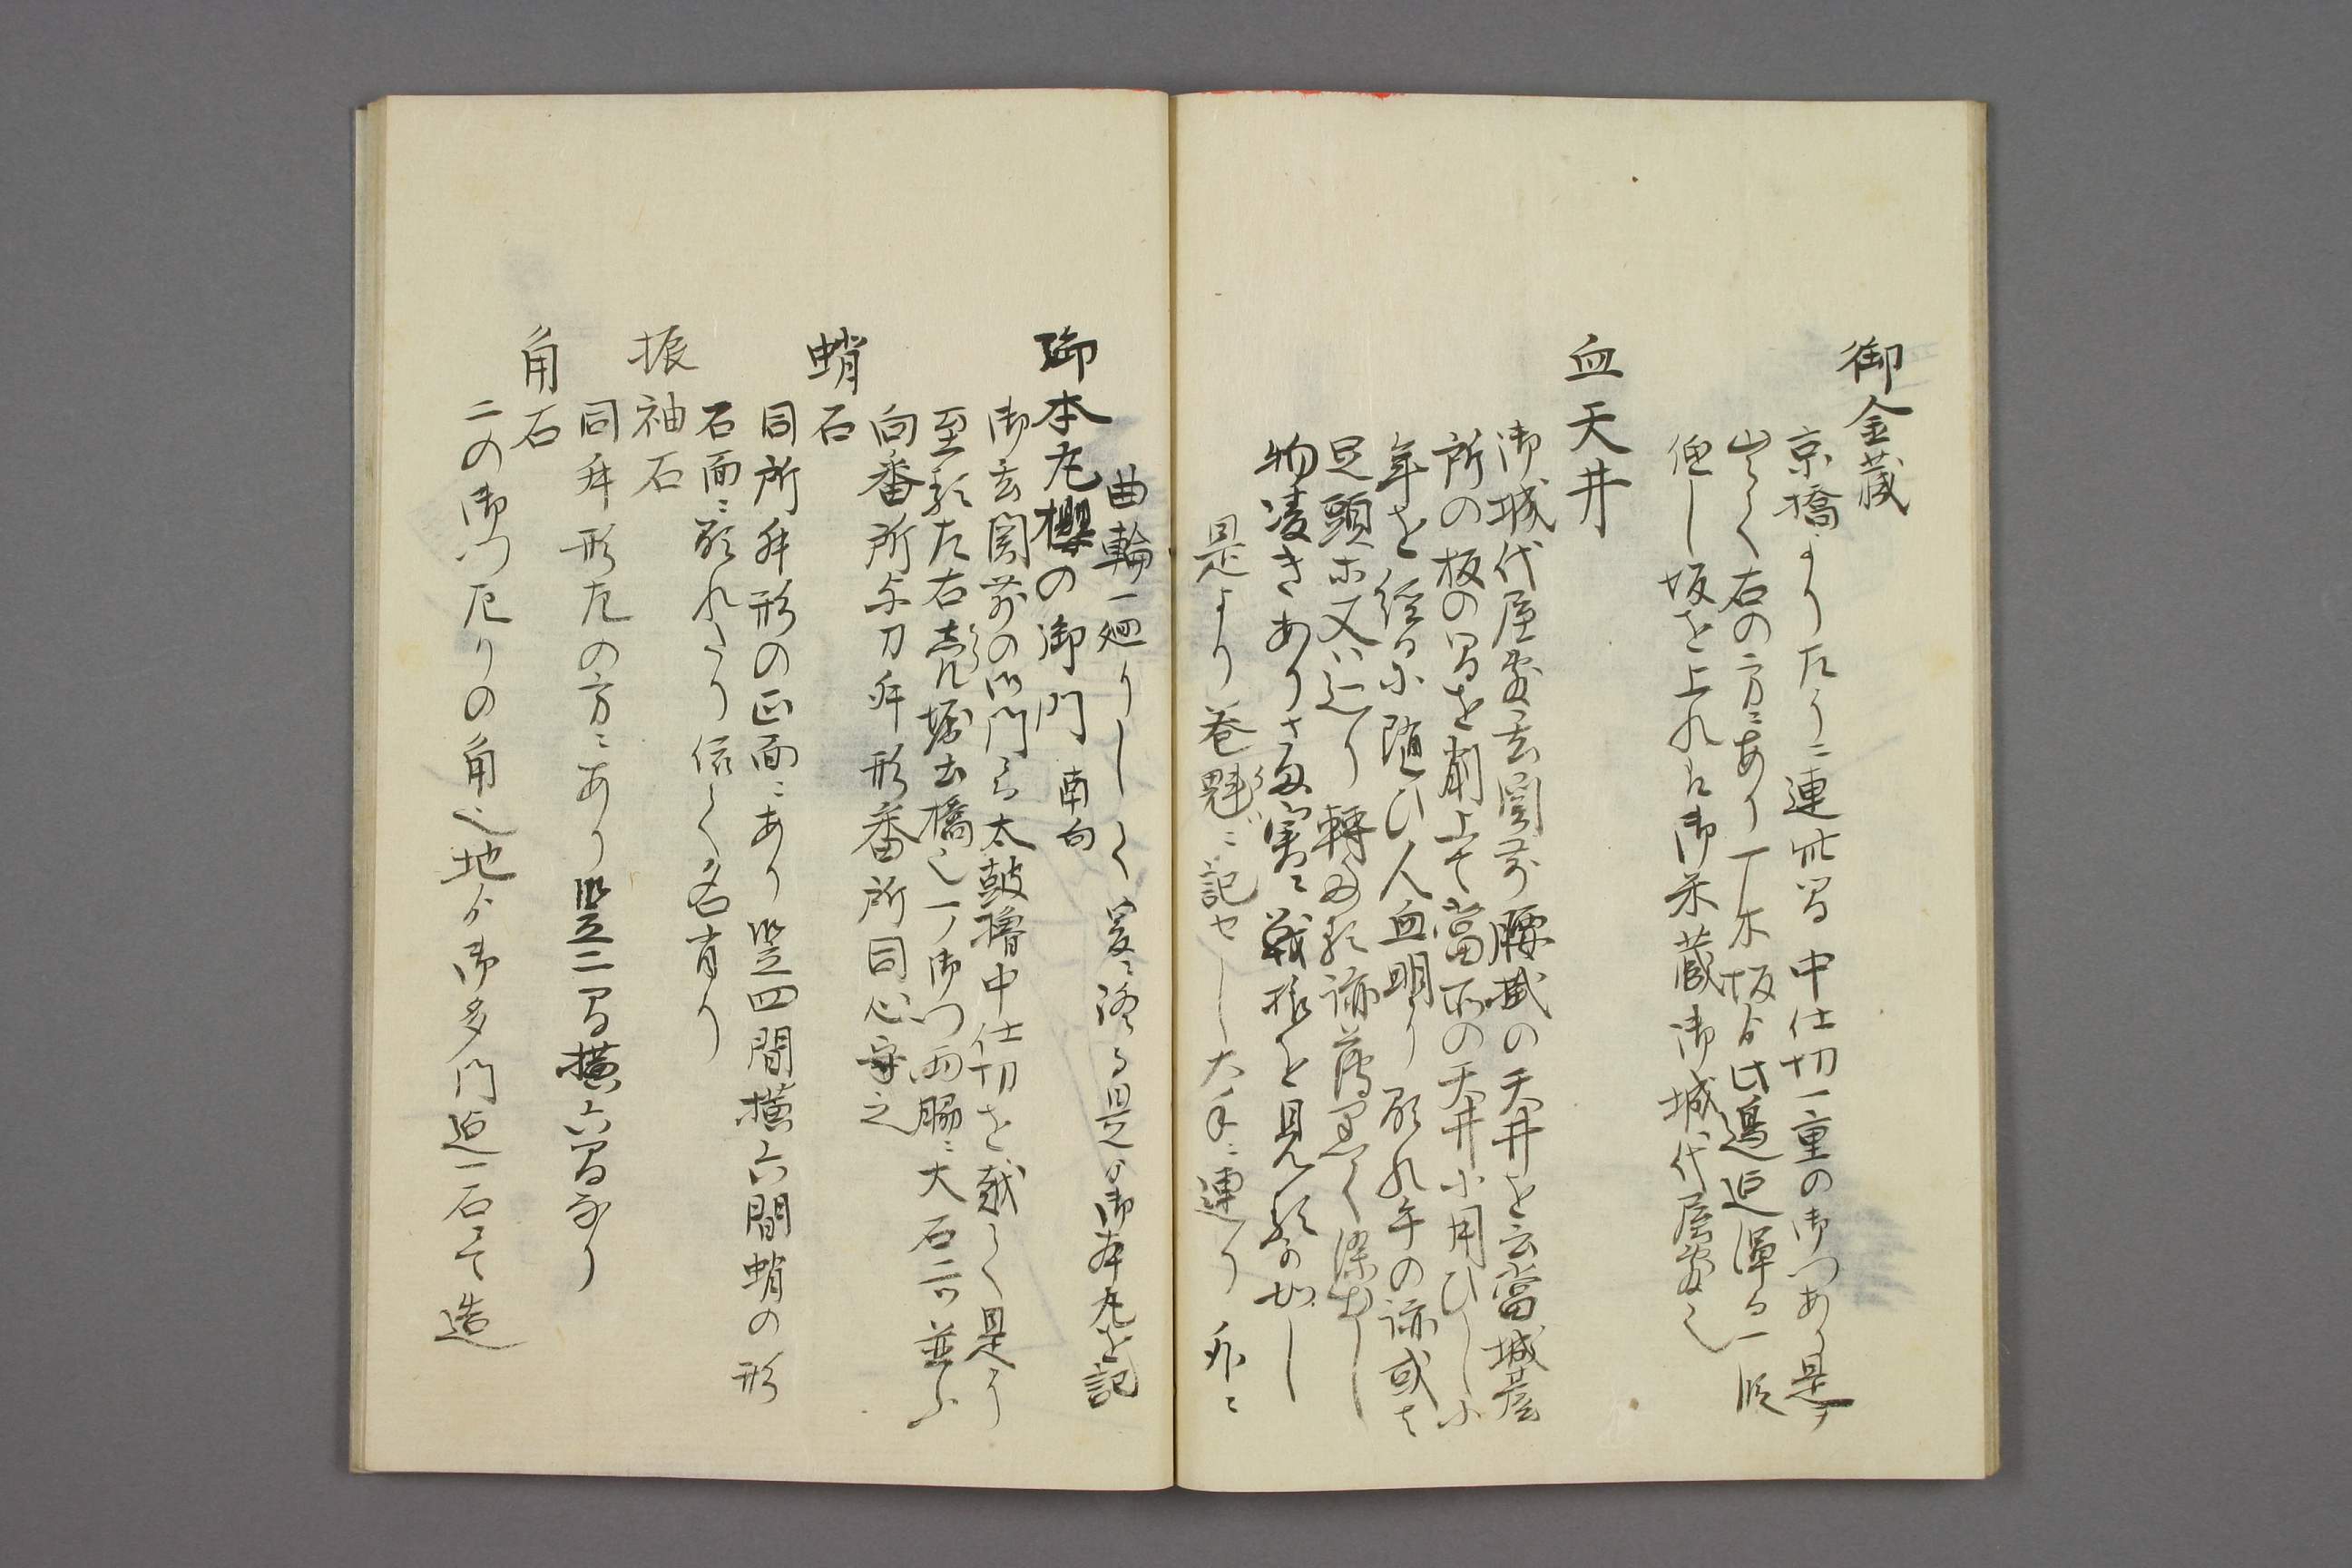 御金蔵
京橋より左り二連此間中仕切一重の御門あり是ヲ
出て右の方ニあり丁木坂より此邊迄渾る一段
低し坂を上れは御米蔵御城代屋敷也
血天井
御城代屋敷玄関前腰掛の天井を云當城臺
所の板の間を削上て當所の天井に用ひしに
年を経るに随ひ人血明り顕れ手の跡或は
足頭又ハ辷り轉ふ跡薄黒く染し
物凄きありさま実ニ戦振を見るか如し
是より巻魁ニ記せし大手ニ連り外ニ
曲輪一廻りしく爰ニ終る是より御本丸を記
御本丸櫻の御門 南向
御玄関前の御門より太鼓櫓中仕切を越して是より
至る左右売堀土橋也一ノ御門両脇ニ大石二ツ並ふ
向番所与力舛形番所同心守之
蛸石
同所舛形の正面ニあり竪四間横六間蛸の形
石面ニ顕れたり依て名有り
振袖石
同舛形左の方ニあり竪二間横六間なり
角石
二の御門左りの角也地より御多門迄一石にて造